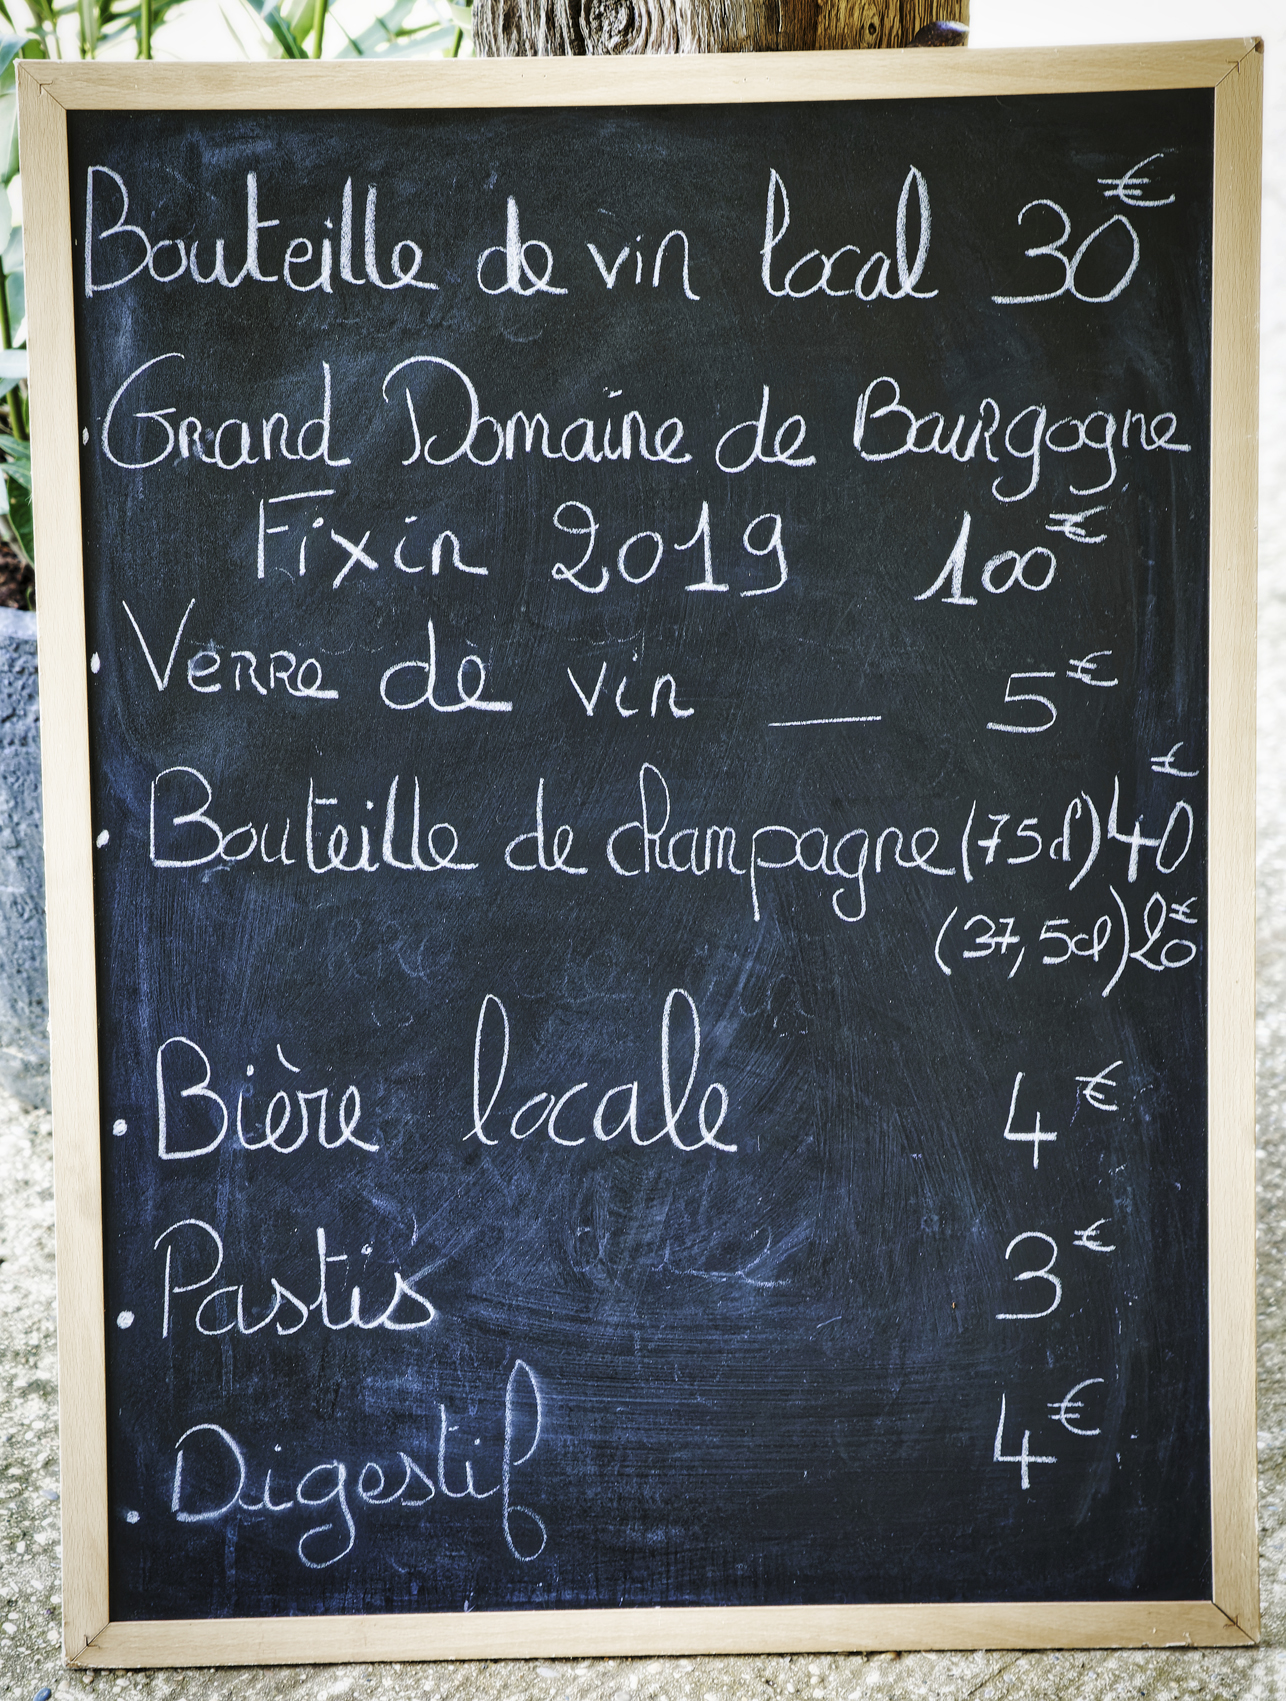 Bouteille de vin local 30€
· Grand Domaine de Bourgogne
Fixin 2019 100€
· Verre de vin __ 5€
· Bouteille de champagne (75cl) 40€
(37,5cl) 20€
· Bière locale 4€
· Pastis 3€
· Digestif 4€